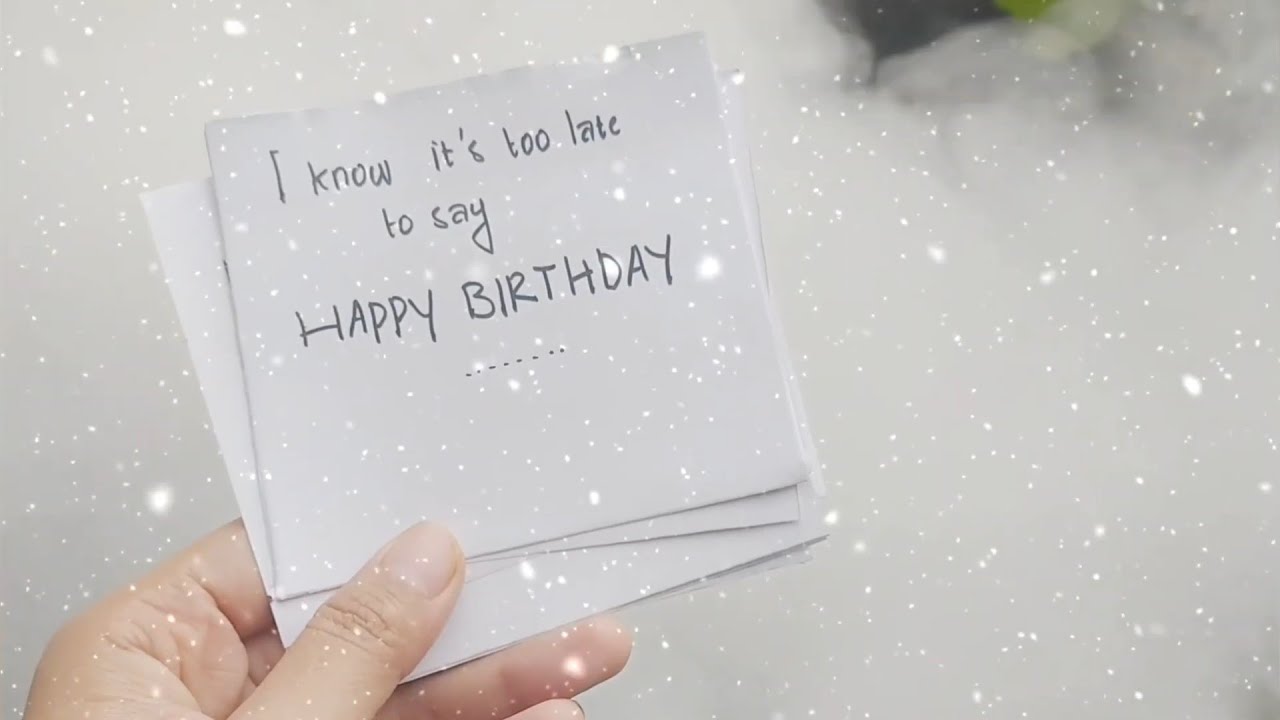 I know it's too late
to say
HAPPY BIRTHDAY
........